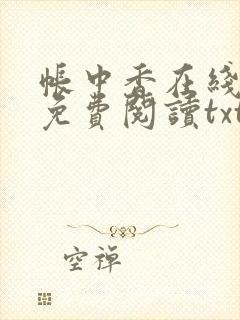 帳中香在綫
免費閱讀txt
空禅